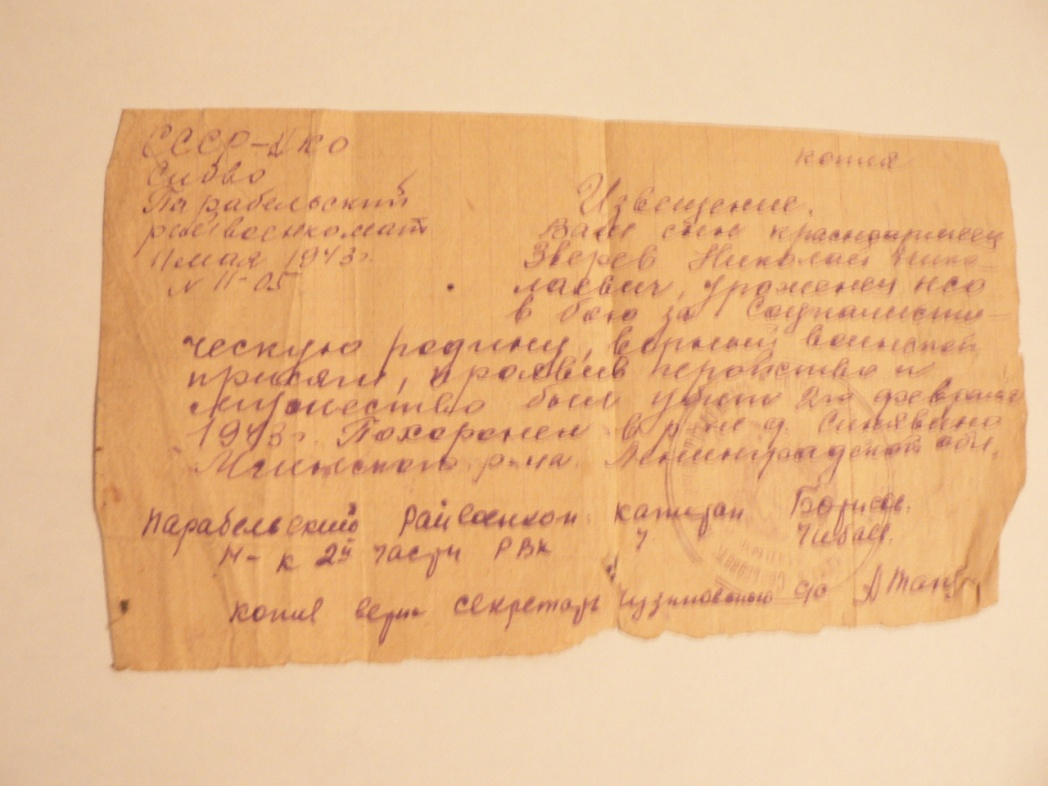 СССР-НКО
копия
Сибво
Парабельский
райвоенкомат
11 мая 1943г.
N 11-05
Извещение.
Ваш сын красноармеец
Зверев Николай Нико-
лаевич, уроженец НСО
в бою за Социалисти-
ческую родину, верный воинской
присяги, проявив геройство и
мужество был убит 2го февраля
1943г. Похоронен в р-не д. Синявино
Мгинского р-на Ленинградской обл.
Парабельский Райвоенком капитан Борисов.
Н-к 2й части РВК Чибаев.
копия верна секретарь с/с